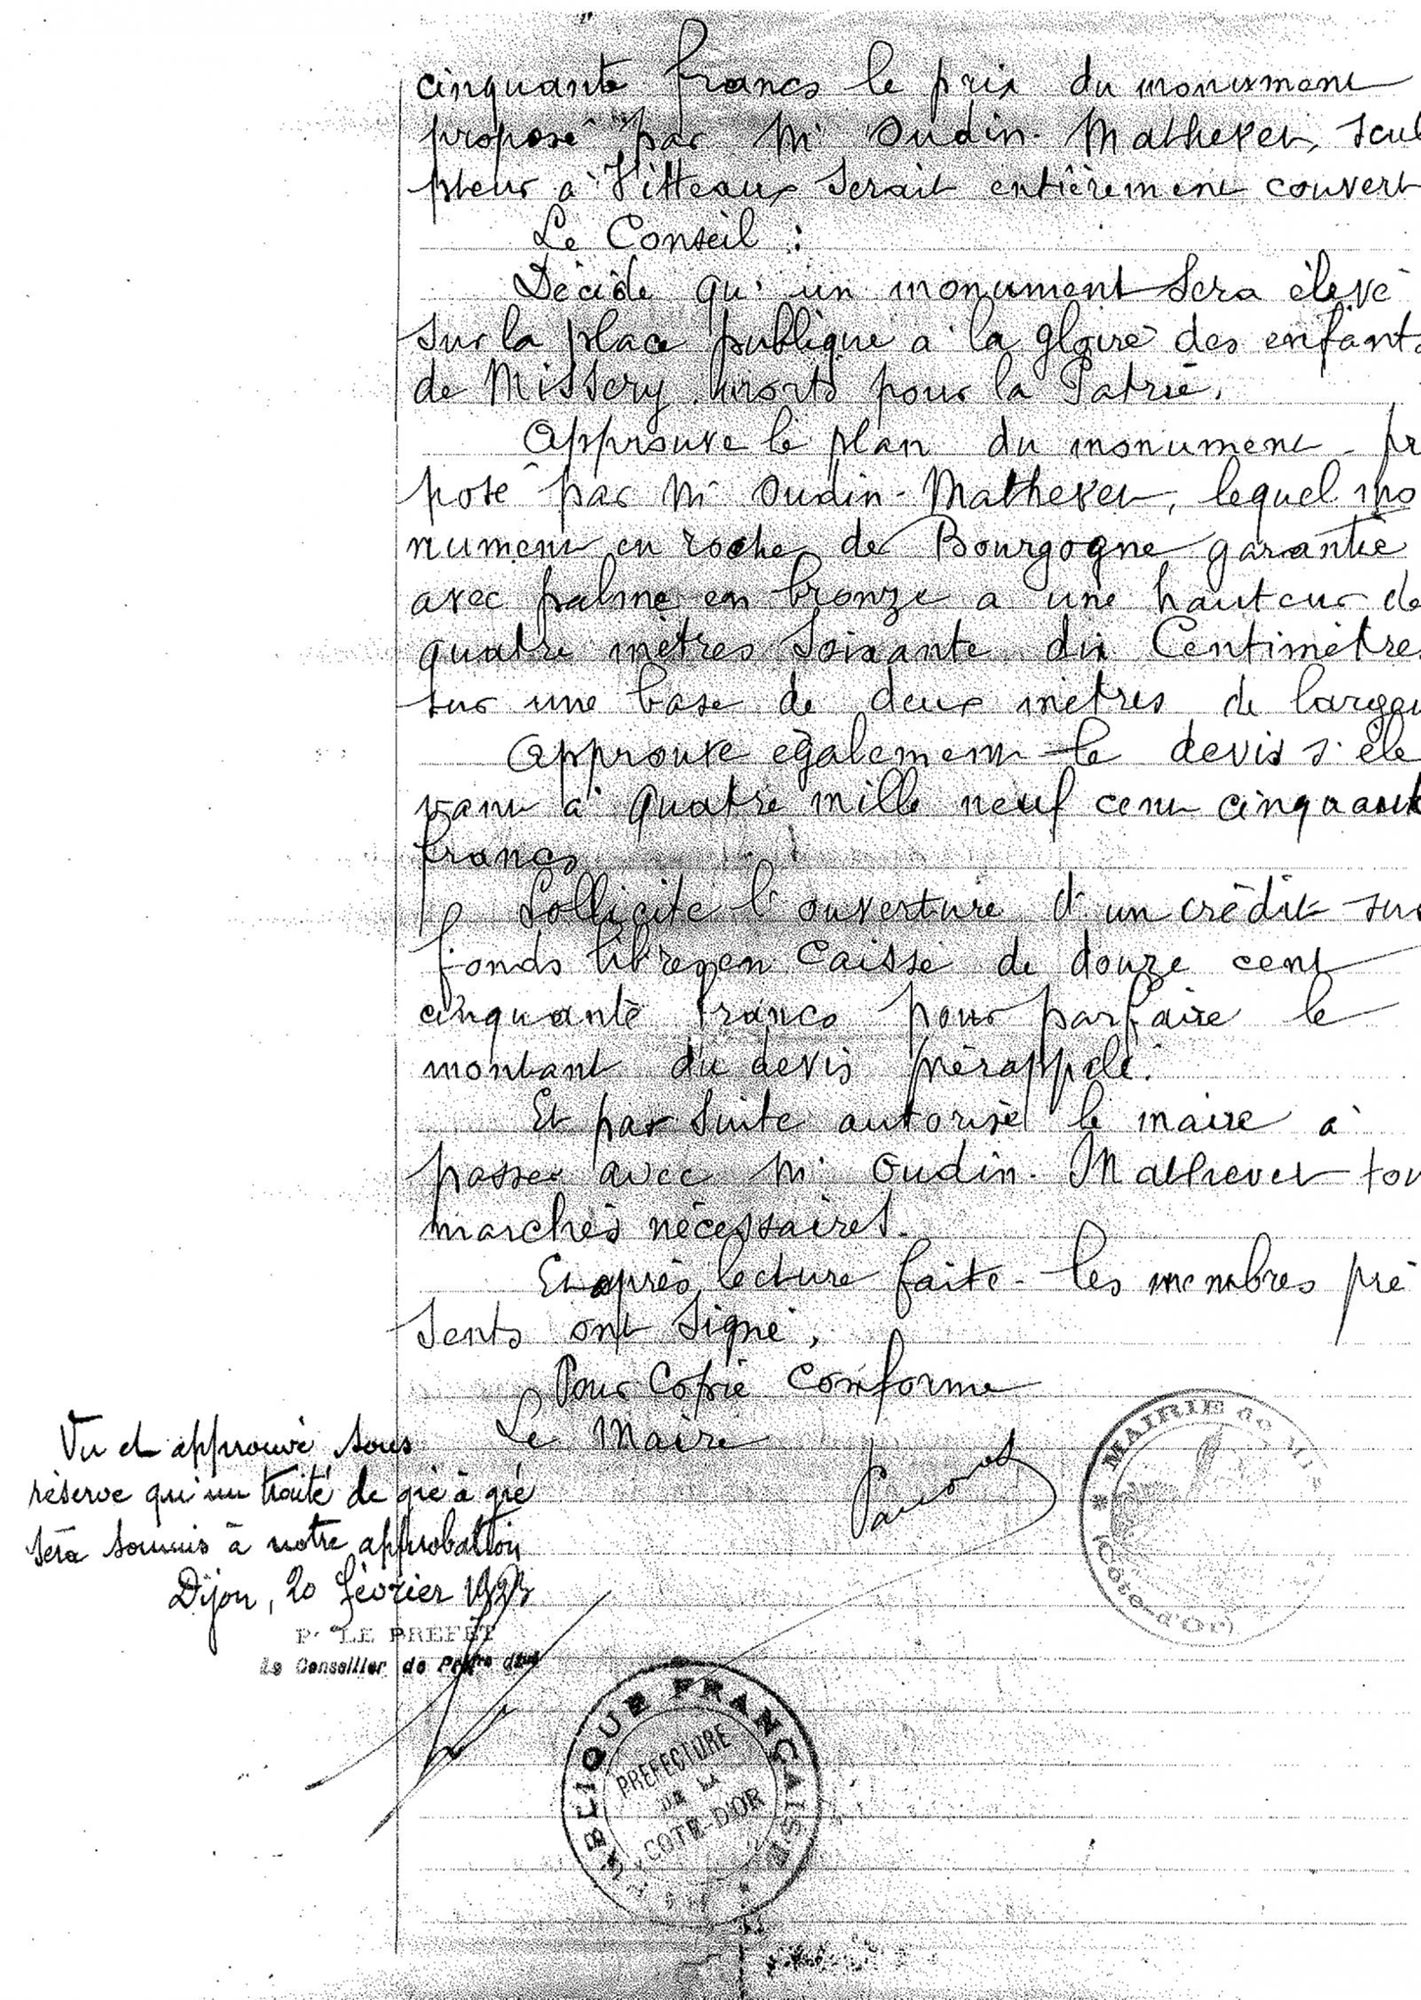 cinquante francs le prix du monument
proposé par Mr Oudin-Mathevet, scul
pteur à Vitteaux serait entièrement couvert
Le Conseil :
Décide qu'un monument sera élevé
sur la place publique à la gloire des enfants
de Missery morts pour la Patrie.
Approuve le plan du monument pr
posé par Mr Oudin-Mathevet, lequel mo
nument en roche de Bourgogne garantie
avec palme en bronze a une hauteur de
quatre mètres soixante dix Centimètres
sur une base de deux mètres de largeu
Approuve également le devis s'éle
vant à quatre mille neuf cent cinquante
francs
Sollicite l'ouverture d'un crédit sur
fonds libres en Caisse de douze cent
cinquante francs pour parfaire le
montant du devis prérappelé.
Et par suite autorise le maire à
passer avec Mr Oudin-Mathevet tou
marchés nécessaires.
Et après lecture faite les membres pré
sents ont signé,
Pour Copie Conforme
Le Maire
Vu et approuvé sous
réserve qu'un traité de gré à gré
sera soumis à notre approbation
Dijon, 20 février 1923
Pr LE PREFET
Le Conseiller de Préfre dlgué
MAIRIE de Mis
(Côte-d'Or)
RÉPUBLIQUE FRANÇAISE
PREFECTURE
DE LA
COTE-D'OR